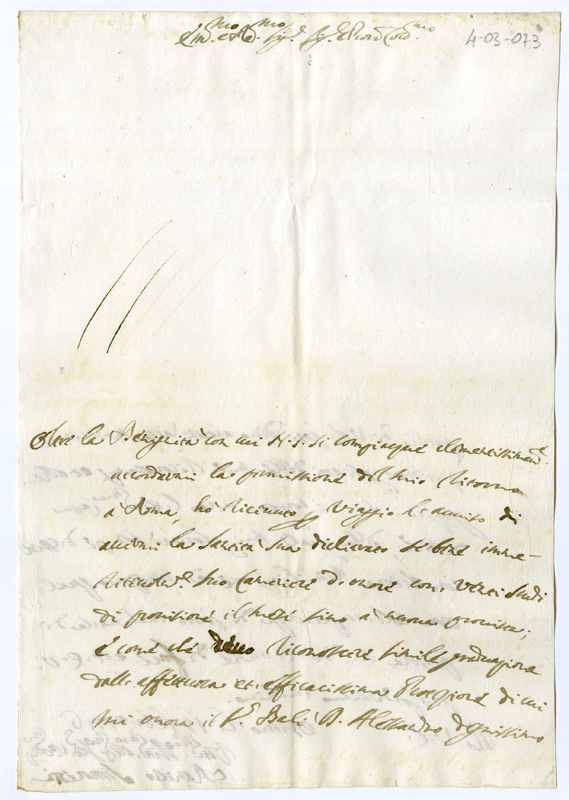 Em.mo et R.mo Sig.r Sig.r Pron Col.mo
4-03-073
Oltre la Benignità con cui N. S. si compiacque clementissimam.te
accordarmi la permissione del mio ritorno
à Roma, hò ricevuto p viaggio l'avviso di
avermi la Santità Sua dichiarato sebene imme-
ritevolm.te Suo Cameriere d'onore con venti Scudi
di provisione il mese sino à nuova provista;
è come che devo riconoscere simile graduazione
dalla affettuosa et efficacissima Protezione di cui
mi onora il S.r Bali D. Alessandro degnissimo